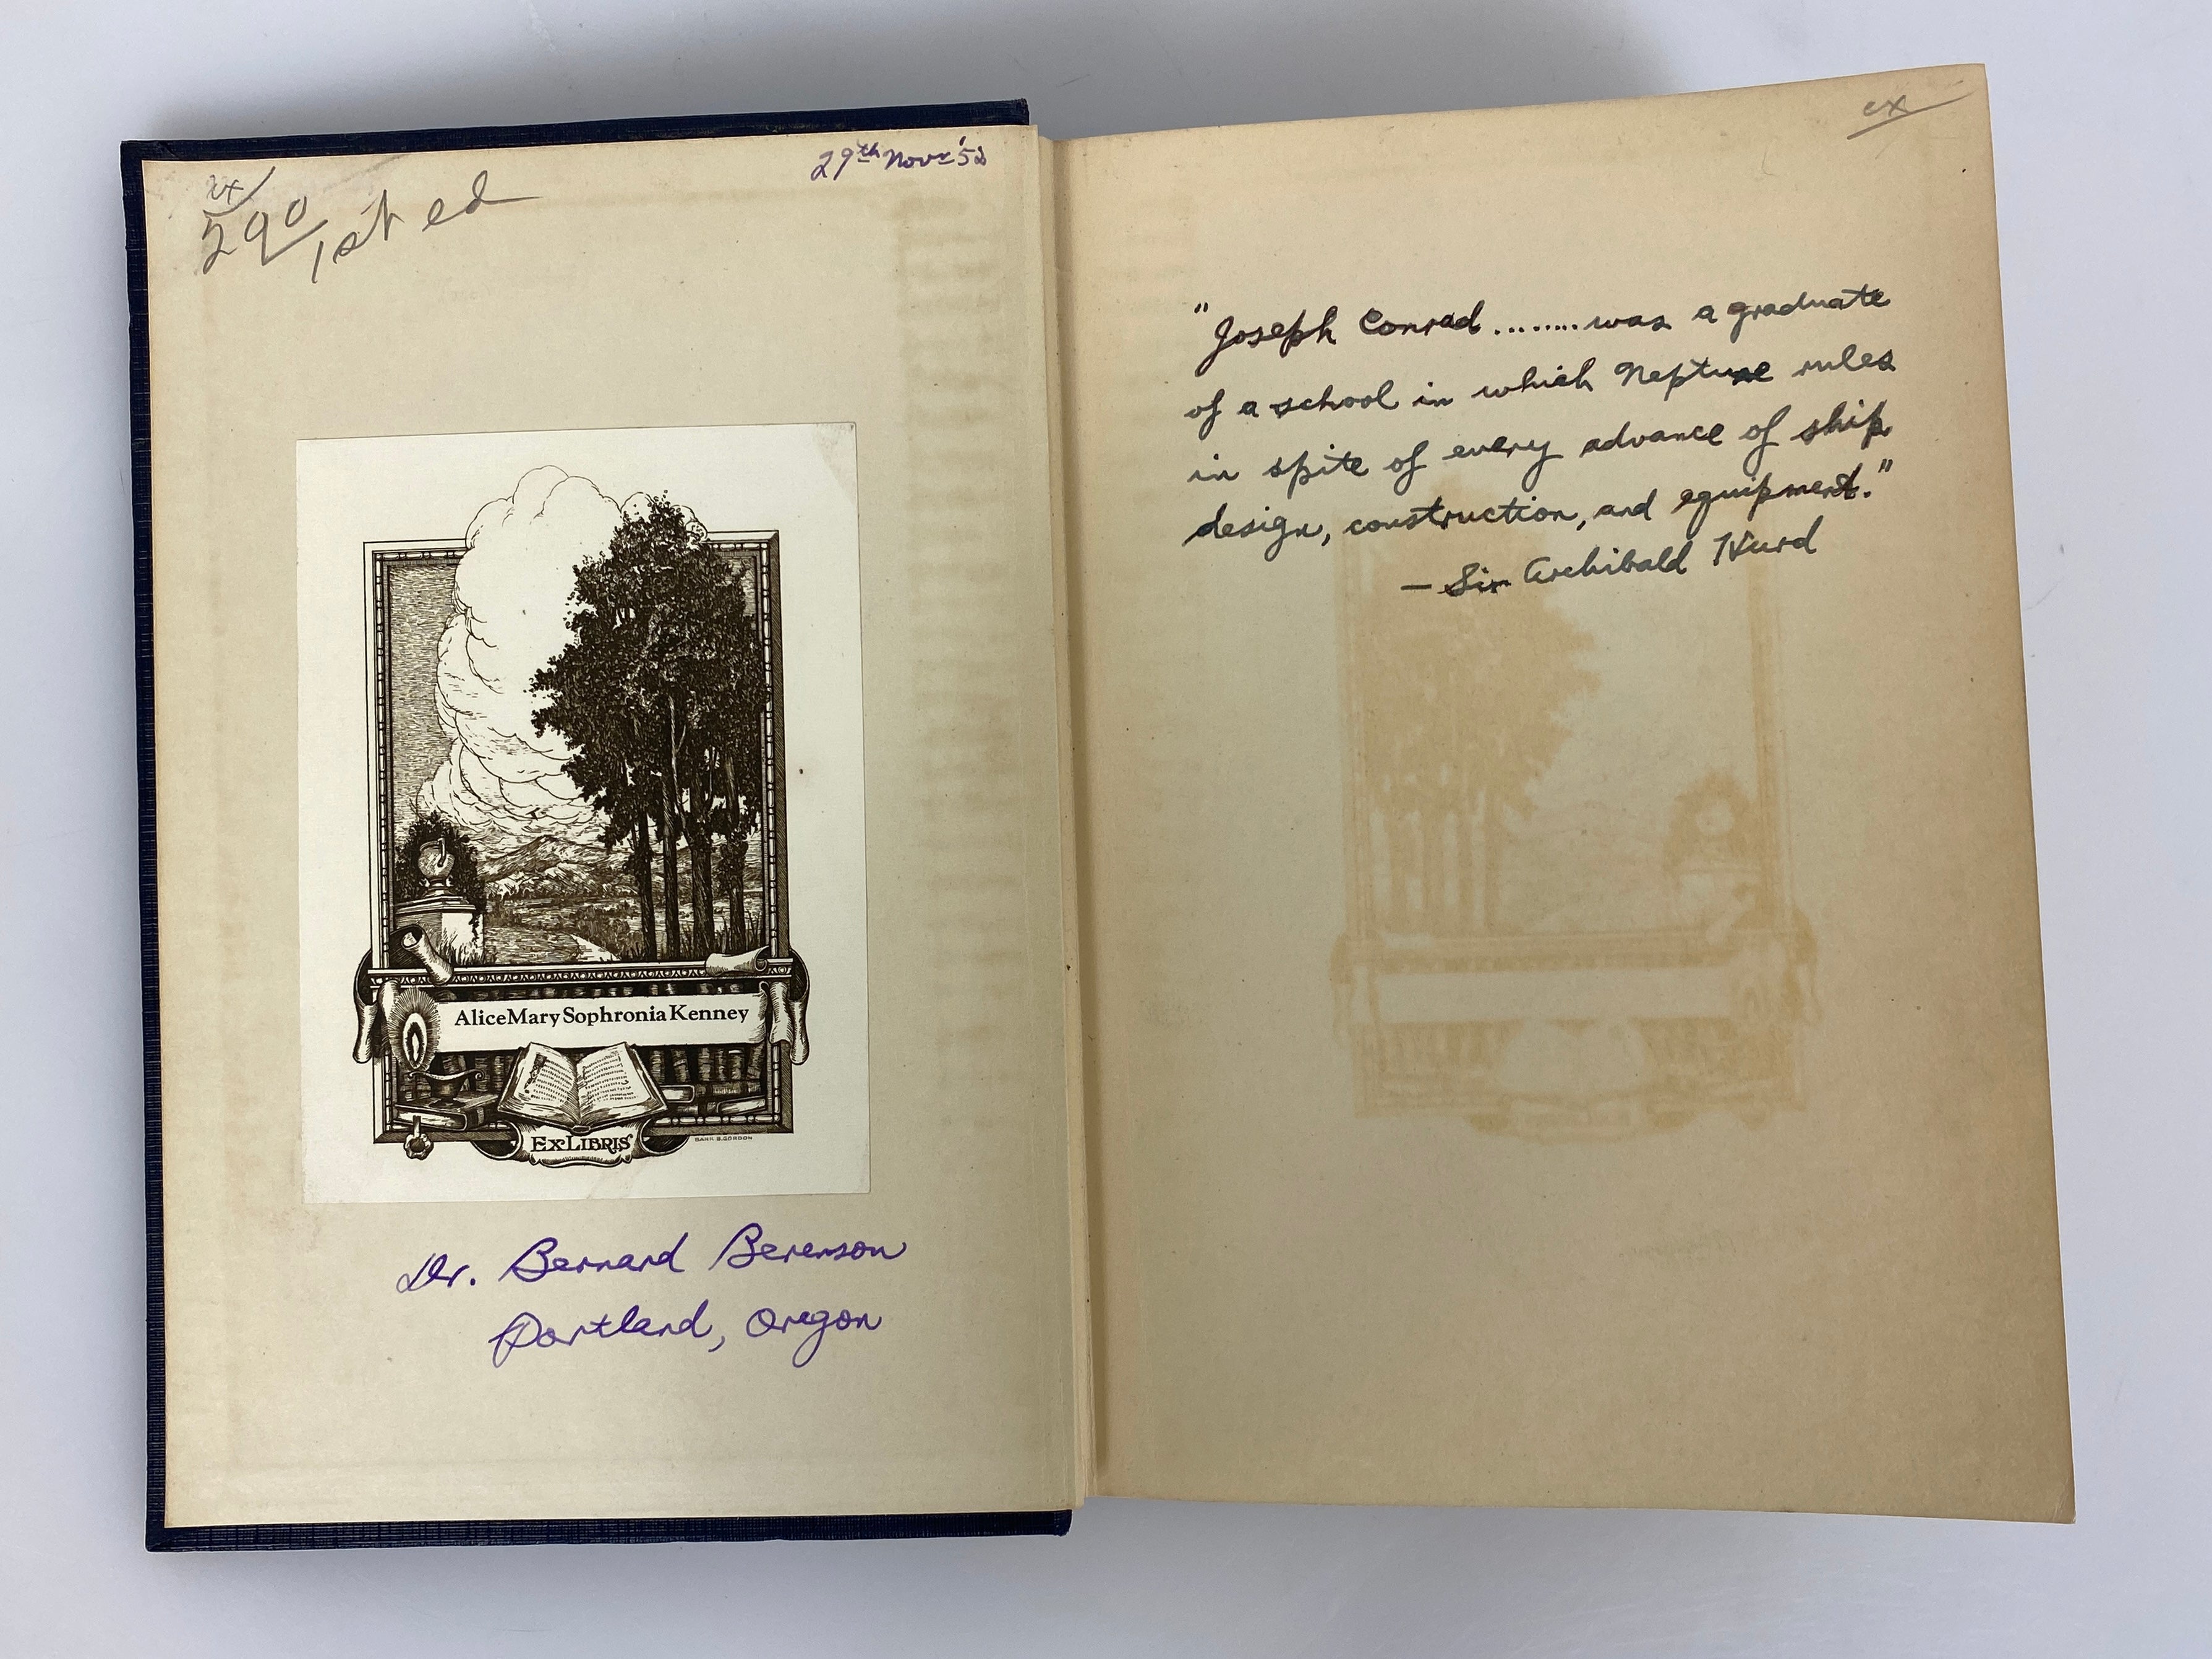 ex
29th Novr '52
290
1st ed
AliceMary Sophronia Kenney
EX LIBRIS
Dr. Bernard Berenson
Portland, Oregon
ex
"Joseph Conrad ........ was a graduate
of a school in which Neptune rules
in spite of every advance of ship
design, construction, and equipment."
— Sir Archibald Hurd